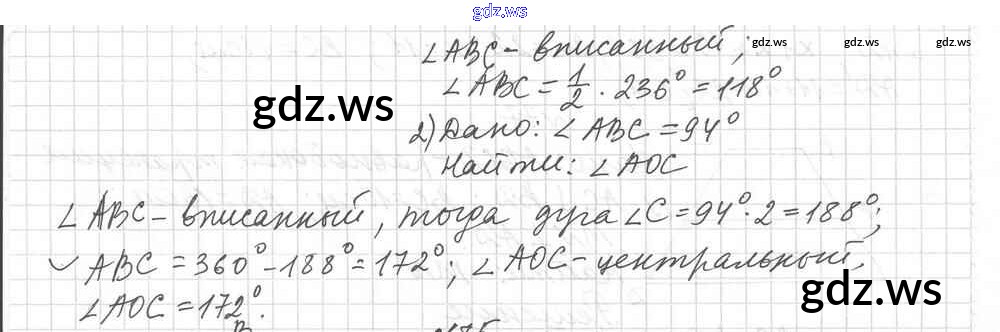 gdz.ws
∠ABC - вписанный; gdz.ws gdz.ws gdz.ws
∠ABC = 1/2 · 236° = 118°
gdz.ws
2) Дано: ∠ABC = 94°
Найти: ∠AOC
∠ABC - вписанный, тогда дуга ∠C = 94° · 2 = 188°;
◡ ABC = 360° - 188° = 172°; ∠AOC - центральный,
gdz.ws
∠AOC = 172°.
B